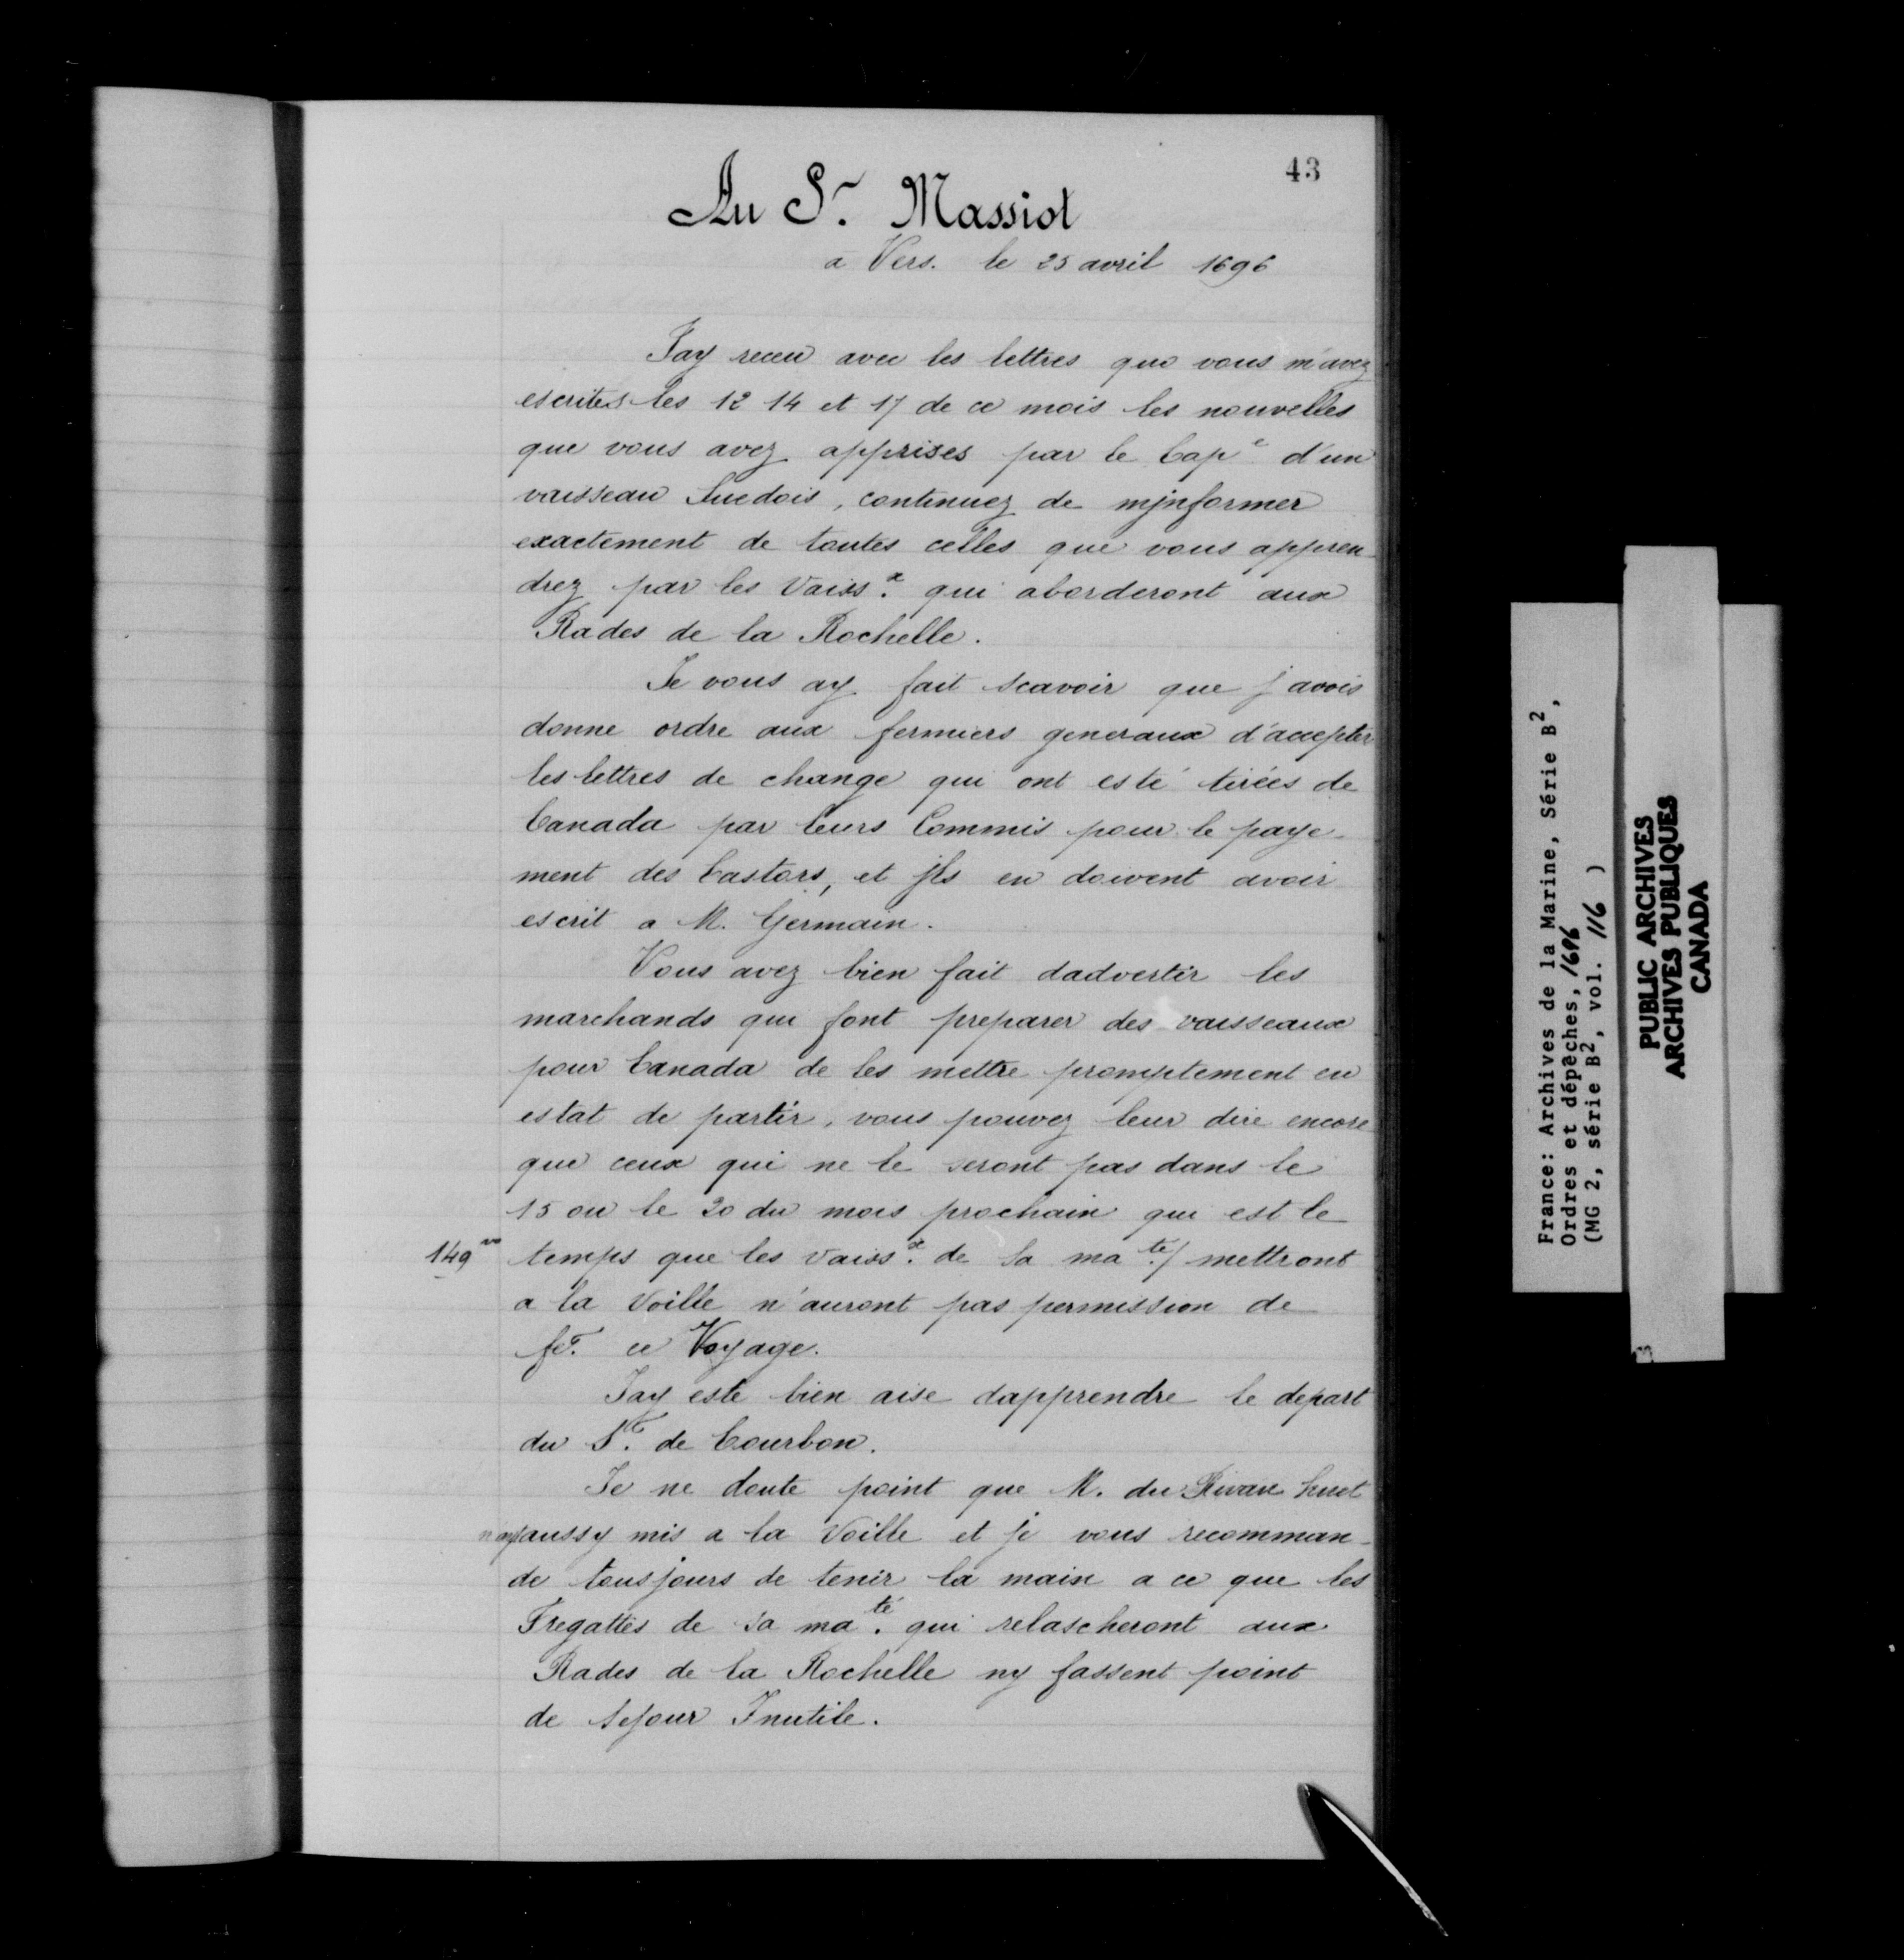 43
Au Sr. Massiot
a Vers. le 25 avril 1696
Jay receu avec les lettres que vous m'avez
escrites les 12 14 et 17 de ce mois les nouvelles
que vous avez apprises par le Cape d'un
vaisseau Suedois, continuez de mjnformer
exactement de toutes celles que vous appren-
drez par les Vaissx. qui aborderont aux
Rades de la Rochelle.
Je vous ay fait scavoir que j'avois
donne ordre aux fermiers generaux d'accepter
les lettres de change qui ont esté tirées de
Canada par leurs Commis pour le paye-
ment des Castors, et jls en doivent avoir
escrit a M. Germain.
Vous avez bien fait dadvertir les
marchands qui font preparer des vaisseaux
pour Canada de les mettre promptement en
estat de partir, vous pouvez leur dire encore
que ceux qui ne le seront pas dans le
15 ou le 20 du mois prochain qui est le
149vo temps que les vaissx. de Sa ma té./ mettront
a la Voille n'auront pas permission de
fe. ce Voyage.
Jay este bien aise dapprendre le depart
du Sr. de Courbon.
Je ne doute point que M. du Rivau huet
n'ay aussy mis a la Voille et je vous recomman-
de tousjours de tenir la main a ce que les
Fregattes de Sa ma té. qui relascheront aux
Rades de la Rochelle ny fassent point
de Sejour Inutile.
France: Archives de la Marine, Série B2,
Ordres et dépêches, 1696
(MG 2, série B2, vol. 116 )
PUBLIC ARCHIVES
ARCHIVES PUBLIQUES
CANADA